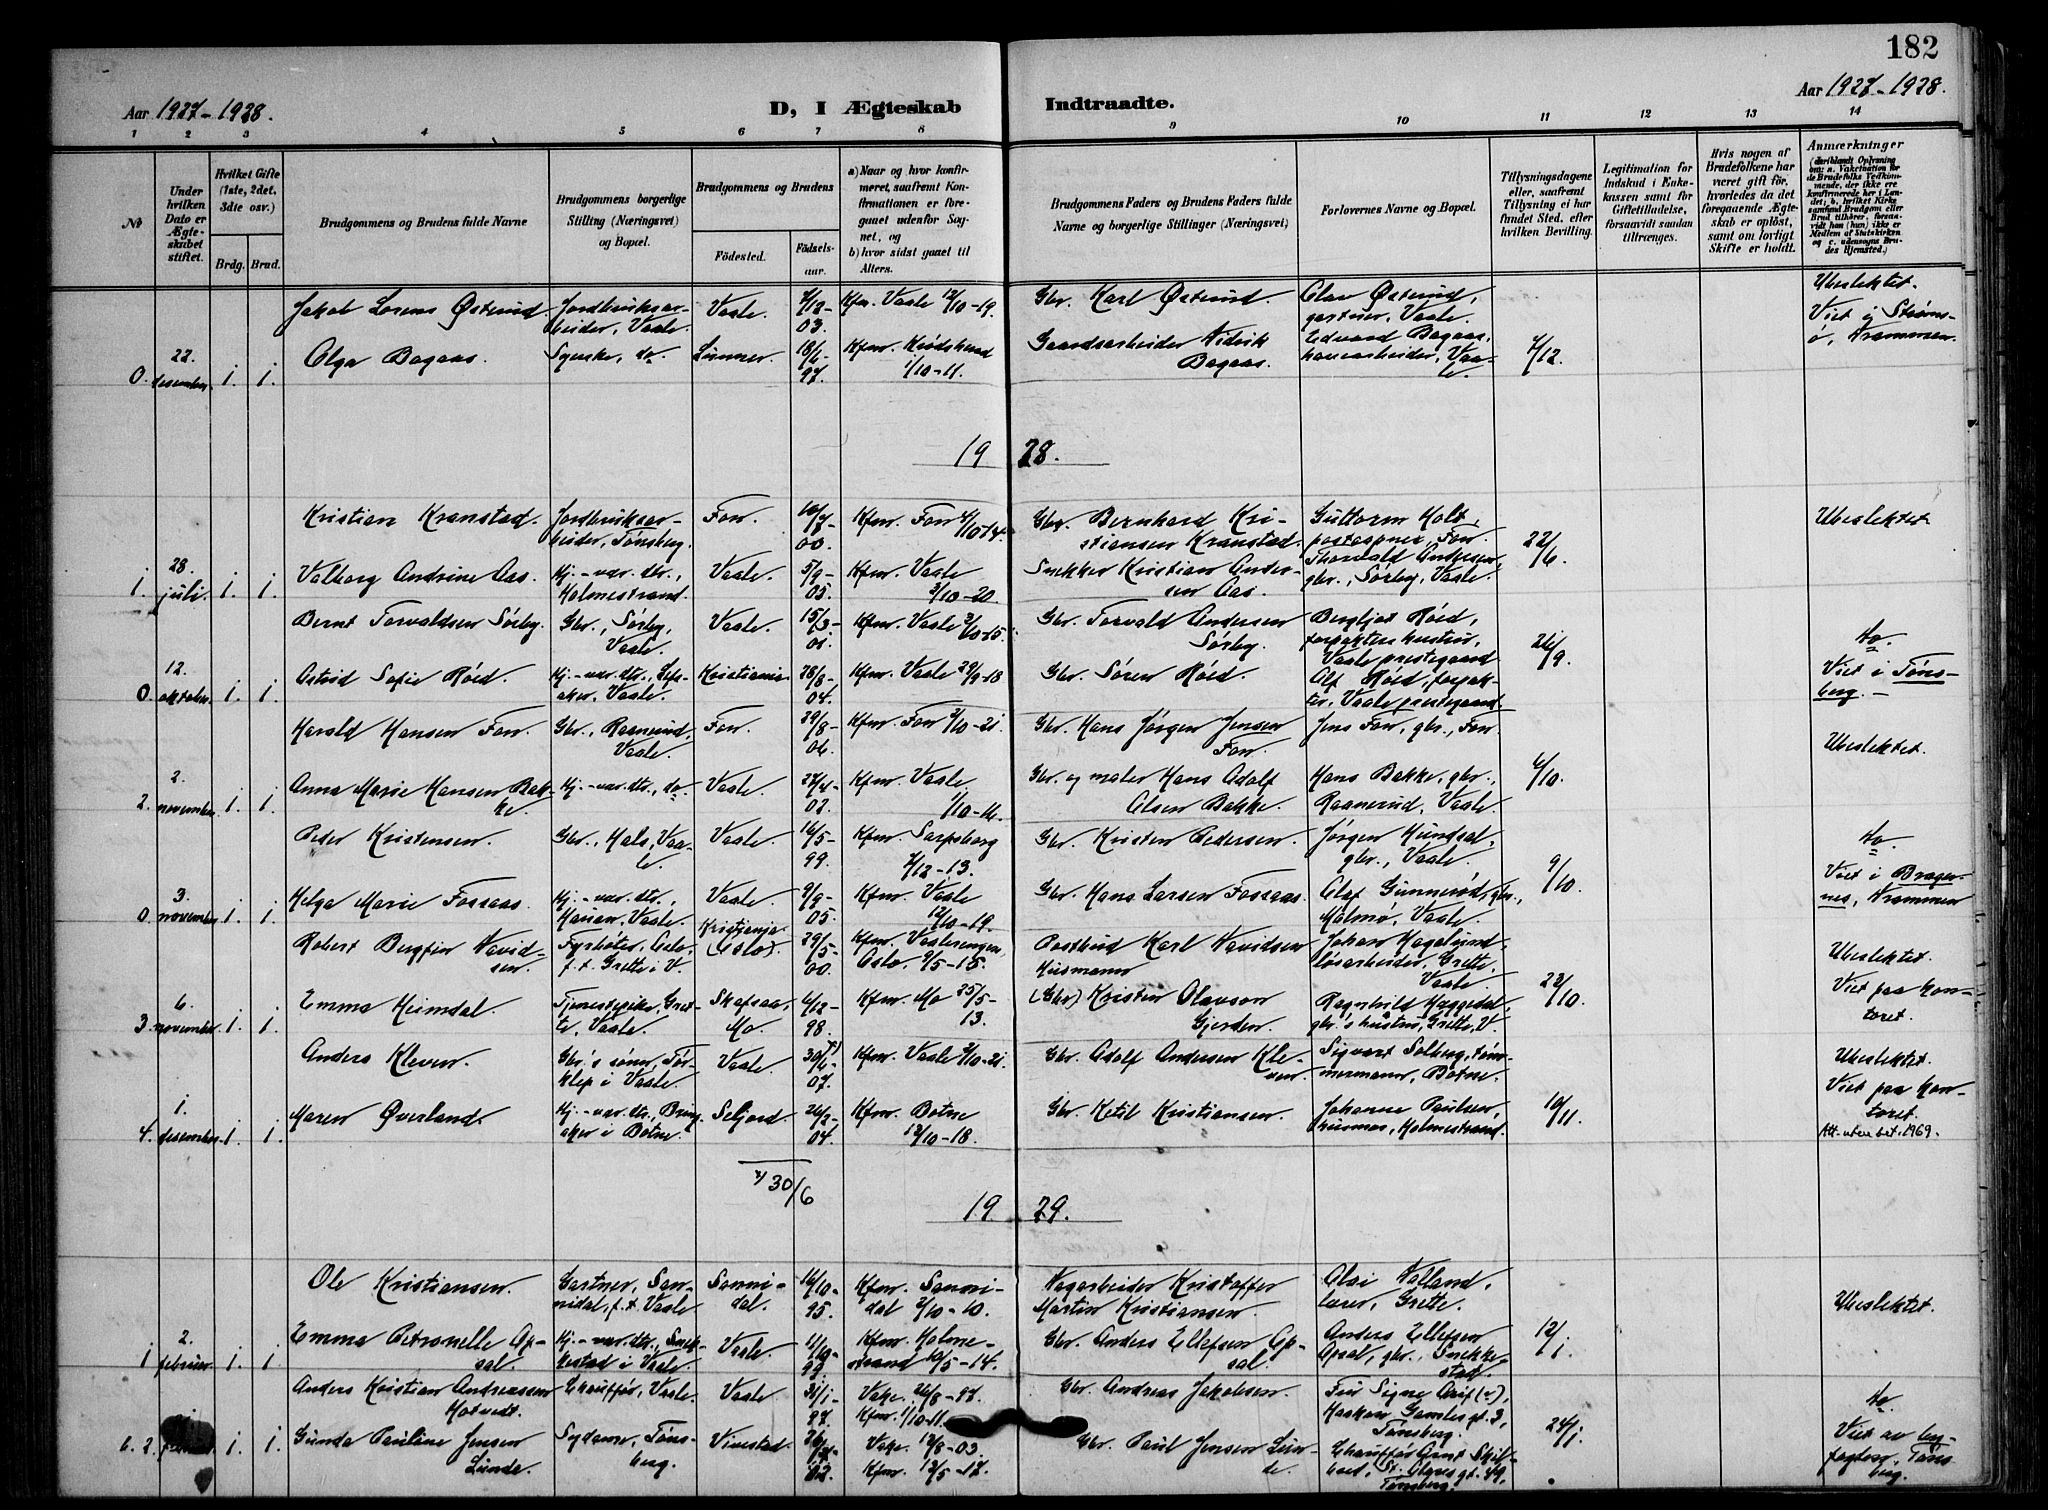 182
Aar 1927-1928.
D, I Ægteskab Indtraadte.
Aar 1927-1928.
1 2 3 4 5 6 7 8 9 10 11 12 13 14
№
Under hvilken Dato er Ægteskabet stiftet.
Hvilket Gifte (1ste, 2det. 3dte osv.)
Brdg. Brud.
Brudgommens og Brudens fulde Navne
Brudgommens borgerlige Stilling (Næringsvei) og Bopæl.
Brudgommens og Brudens
Födested. Födsels-aar.
a) Naar og hvor konfirmeret, saafremt Konfirmationen er foregaaet udenfor Sognet, og
b) hvor sidst gaaet til Alters.
Brudgommens Faders og Brudens Faders fulde Navne og borgerlige Stillinger (Næringsvei)
Forlovernes Navne og Bopæl.
Tillysningsdagene eller, saafremt Tillysning ei har fundet Sted, efter hvilken Bevilling.
Legitimation for Indskud i Enkekassen samt for Giftetilladelse, forsaavidt saadan tiltrænges.
Hvis nogen af Brudefolkene har været gift för, hvorledes da det foregaaende Ægteskab er oplöst, samt om lovligt Skifte er holdt.
Anmærkninger
Jakob Lorens Østerud Jordbruksarbeider, Vaale. Vaale. 4/12-03. Kfm. Vaale 12/10-19. Gbr. Karl Østerud. Olav Østerud, gartner, Vaale. Ubeslektet.
0. 22. desember. 1. 1. Olga Bagaas. Syerske, do Limmer. 18/6-97. Kfm. Krødsherad 1/10-11. Gaardsarbeider Didrik Bagaas. Edvard Bagaas, havearbeider, Vaale. 4/12. Viet i Strømsø, Drammen.
1928.
Kristian Kranstad. Jordbruksarbeider, Tønsberg. Fon. 10/7-00. Kfm. Fon 4/10-14. Gbr. Bernhard Kristiansen Kranstad. Guttorm Holt, postaapner, Fon. Ubeslektet.
1. 28. juli. 1. 1. Valborg Andrine Aas. Kj.-var. dtr., Holmestrand. Vaale. 5/9-05. Kfm. Vaale 3/10-20. Snekker Kristian Andersen Aas. Thorvald Andersen, gbr., Sørby, Vaale. 22/6.
Bernt Torvaldsen Sørby. Gbr., Sørby, Vaale. Vaale. 15/3-01. Kfm. Vaale 3/10-15. Gbr. Torvald Andersen Sørby. Bergljot Røed, forpakters hustru, Vaale prestegaard. do
0. 12. oktober. 1. 1. Astrid Sofie Røed. Kj.-var. dtr., Vaale. Kristiania. 28/8-04. Kfm. Vaale 29/9-18. Gbr. Søren Røed. Alf Røed, forpakter, Vaale prestegaard. 26/9. Viet i Tønsberg.
Harald Hansen Fon. Gbr., Raanerud, Vaale. Fon. 29/8-06. Kfm. Fon 2/10-21. Gbr. Hans Jørgen Jensen Fon. Jens Fon, gbr., Fon. Ubeslektet.
2. 2. november. 1. 1. Anna Marie Hansen Bakke. Kj.-var. dtr., do Vaale. 27/4-02. Kfm. Vaale 1/10-16. Gbr. og maler Hans Adolf Olsen Bakke. Hans Bakke, gbr., Raanerud, Vaale. 6/10.
Peder Kristensen. Gbr., Hals, Vaale. Vaale. 16/5-99. Kfm. Sarpsborg 7/12-13. Gbr. Kristen Pedersen. Jørgen Hundsal, gbr., Vaale. do
0. 3. november. 1. 1. Helga Marie Fossaas. Kj.-var. dtr., Vaale. Vaale. 9/9-05. Kfm. Vaale 12/10-19. Gbr. Hans Larsen Fossaas. Olaf Gunnerød, gbr., Malmø, Vaale. 9/10. Viet i Bragernes, Drammen
Robert Bergfin Davidsen. Fyrbøter, Oslo, f.t. Grette i V. Kristiania (Oslo). 29/5-00. Kfm. Vaalerengen, Oslo, 9/5-15. Postbud Karl Davidsen Johan Hagelund, løsarbeider, Grette, Vaale. Ubeslektet.
3. 6. november. 1. 1. Emma Heimdal. Tjenestepike, Grette, Vaale. Skafsaa, Mo. 6/12-98. Kfm. Mo 25/5-13. Husmann (Gbr) Kristen Olavson Gjerden. Ragnhild Heggedal, gbr.'s hustru, Grette, V. 22/10. Viet paa kontoret.
Anders Kleven. Gbr.'s sønn, Vaale. Vaale. 30/6-07. Kfm. Vaale 2/10-21. Gbr. Adolf Andersen Kleven. Sigvart Solberg, tømmermann, Botne. Ubeslektet.
4. 1. desember. 1. 1. Maren Øverland. Kj.-var. dtr., Bringaker i Botne. Seljord. 26/2-04. Kfm. Botne 13/10-18. Gbr. Ketil Kristiansen. Johanne Paulsen, husmor, Holmestrand. 10/11. Viet paa kontoret.
Att. utenbet. 1969.
30/6
1929.
Ole Kristiansen. Gartner, Sannidal, f.t. Vaale. Sannidal. 16/10-95. Kfm. Sannidal 2/10-10. Vagarbeider Kristoffer Martin Kristiansen Olai Valland, lærer, Grette. Ubeslektet.
1 2. februar. 1. 1. Emma Petronelle Opsal. Kj.-var. dtr., Snekkestad i Vaale. Vaale. 11/10-99. Kfm. Holmestrand 10/5-14. Gbr. Anders Ellefsen Opsal. Anders Ellefsen Opsal, gbr., Snekkestad. 12/1.
Anders Kristian Andreassen Hotvedt. Chauffør, Vaale. Vaale. 31/1-97. Vake. 26/8-97. Kfm. 1/10-11. Gbr. Andreas Jakobsen. Haakon Gamles gt. 3, Tønsberg. do
6. 2. 1. 1. Gunda Pauline Jensen Lunde. Sydame, Tønsberg. Vivestad. Vake. 13/8-03. Kfm. 13/5-17. Gbr. Paul Jensen Lunde. Chauffør St. Olavs gt. 49, Tønsberg. 24/1. Viet av byfogden, Tønsberg.